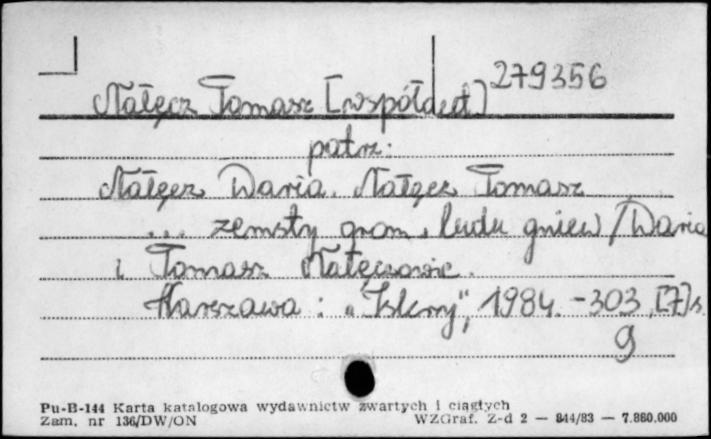 279356
Nałęcz Tomasz [współaut]
patrz:
Nałęcz Daria, Nałęcz Tomasz
... zemsty grom, ludu gniew / Daria
i Tomasz Nałęczowie.
Warszawa : "Iskry", 1984. - 303, [7] s.
9
Pu-B-144 Karta katalogowa wydawnictw zwartych i ciągłych
Zam. nr 136/DW/ON WZGraf. Z-d 2 — 844/83 — 7.880.000